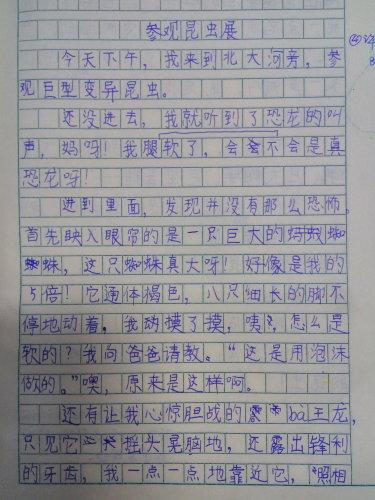 参观昆虫展
今天下午，我来到北大河旁，参
观巨型变异昆虫。
还没进去，我就听到了恐龙的叫
声，妈呀！我腿软了，会不会是真
恐龙呀！
进到里面，发现并没有那么恐怖。
首先映入眼帘的是一只巨大的蜘
蛛，这只蜘蛛真大呀！好像是我的
5倍！它通体褐色，八只细长的脚不
停地动着。我摸了摸，咦，怎么是
软的？我向爸爸请教。“这是用泡沫
做的。”噢，原来是这样啊。
还有让我心惊胆战的ba王龙，
只见它摇头晃脑地，还露出锋利
的牙齿，我一点一点地靠近它，“照相